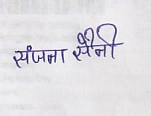 संजना सैनी